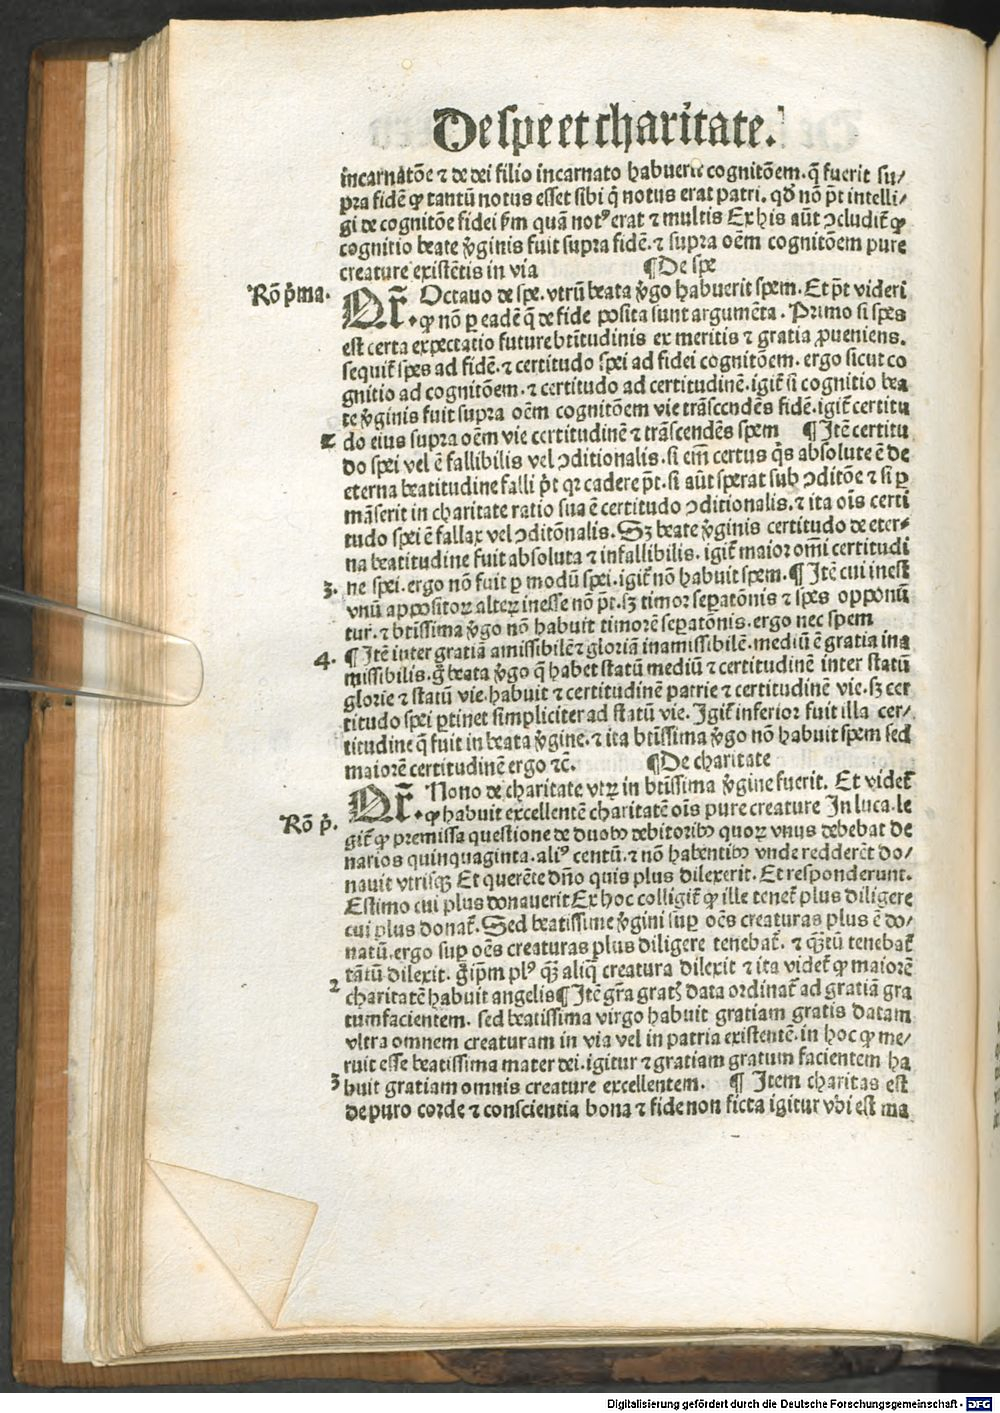 De spe et charitate.
incarnatōe ⁊ de dei filio incarnato habuerit cognitōem. q̄ fuerit su/
pra fidē ꝙ tantū notus esset sibi q̄ notus erat patri. qđ nō pt̄ intelli/
gi de cognitōe fidei ẜm quā notꝰ erat ⁊ multis Ex his aūt ↄcludit̄ ꝙ
cognitio beate v̓ginis fuit supra fidē. ⁊ supra oēm cognitōem pure
creature existētis in via ¶De spe
Rō p̓ma.
Qr̄. Octauo de spe. vtrū beata v̓go habuerit spem. Et pt̄ videri
ꝙ nō ꝑ eadē q̄ de fide posita sunt argumēta. Primo si spes
est certa expectatio future btītudinis ex meritis ⁊ gratia ꝓueniens.
sequit̄ spes ad fidē. ⁊ certitudo spei ad fidei cognitōem. ergo sicut co
gnitio ad cognitōem. ⁊ certitudo ad certitudinē. igit̄ si cognitio bea
te v̓ginis fuit supra oēm cognitōem vie trāscendēs fidē. igit̄ certitu
2 do eius supra oēm vie certitudinē ⁊ trāscendēs spem ¶ Itē certitu
do spei vel ē fallibilis vel ↄditionalis. si em̄ certus q̓s absolute ē de
eterna beatitudine falli pt̄ qꝛ cadere pt̄. si aūt sperat sub ↄditōe ⁊ si ꝑ
māserit in charitate ratio sua ē certitudo ↄditionalis. ⁊ ita oīs certi
tudo spei ē fallax vel ↄditōnalis. Sꝫ beate v̓ginis certitudo de eter⸗
na beatitudine fuit absoluta ⁊ infallibilis. igit̄ maior om̄i certitudi
3. ne spei. ergo nō fuit ꝑ modū spei. igit̄ nō habuit spem. ¶ Itē cui inest
vnū appositoꝝ alteꝝ inesse nō pt̄. sꝫ timor seꝑatōnis ⁊ spes opponū
tur. ⁊ btīssima v̓go nō habuit timorē seꝑatōnis. ergo nec spem
4. ¶ Itē inter gratiā amissibilē ⁊ gloriā inamissibilē. mediū ē gratia ina
missibilis. g̊ beata v̓go q̄ habet statū mediū ⁊ certitudinē inter statū
glorie ⁊ statū vie. habuit ⁊ certitudinē patrie ⁊ certitudinē vie. sꝫ cer
titudo spei ꝑtinet simpliciter ad statū vie. Igit̄ inferior fuit illa cer/
titudine q̄ fuit in beata v̓gine. ⁊ ita btīssima v̓go nō habuit spem sed
maiorē certitudinē ergo ⁊c̄. ¶De charitate
Rō p̓.
Qr̄. Nono de charitate vtꝝ in btīssima v̓gine fuerit. Et videt̄
ꝙ habuit excellentē charitatē oīs pure creature In luca. le
git̄ ꝙ premissa questione de duobꝰ debitoribꝰ quoꝝ vnus debebat de
narios quinquaginta. aliꝰ centū. ⁊ nō habentibꝰ vnde redderēt do/
nauit vtrisqꝫ Et querēte dn̄o quis plus dilexerit. Et responderunt.
Estimo cui plus donauerit Ex hoc colligit̄ ꝙ ille tenet̄ plus diligere
cui plus donat̄. Sed beatissime v̓gini suꝑ oēs creaturas plus ē do/
natū. ergo suꝑ oēs creaturas plus diligere tenebat̄. ⁊ qꝫtū tenebat̄
tātū dilexit. plꝰ qꝫ aliq̄ creatura dilexit ⁊ ita videt̄ ꝙ maiorē
2 charitatē habuit angelis ¶ Itē gr̄a gratꝭ data ordinat̄ ad gratiā gra
tumfacientem. sed beatissima virgo habuit gratiam gratis datam
vltra omnem creaturam in via vel in patria existentē. in hoc ꝙ me/
ruit esse beatissima mater dei. igitur ⁊ gratiam gratum facientem ha
3 buit gratiam omnis creature excellentem. ¶ Item charitas est
de puro corde ⁊ conscientia bona ⁊ fide non ficta igitur vbi est ma
Digitalisierung gefördert durch die Deutsche Forschungsgemeinschaft - DFG